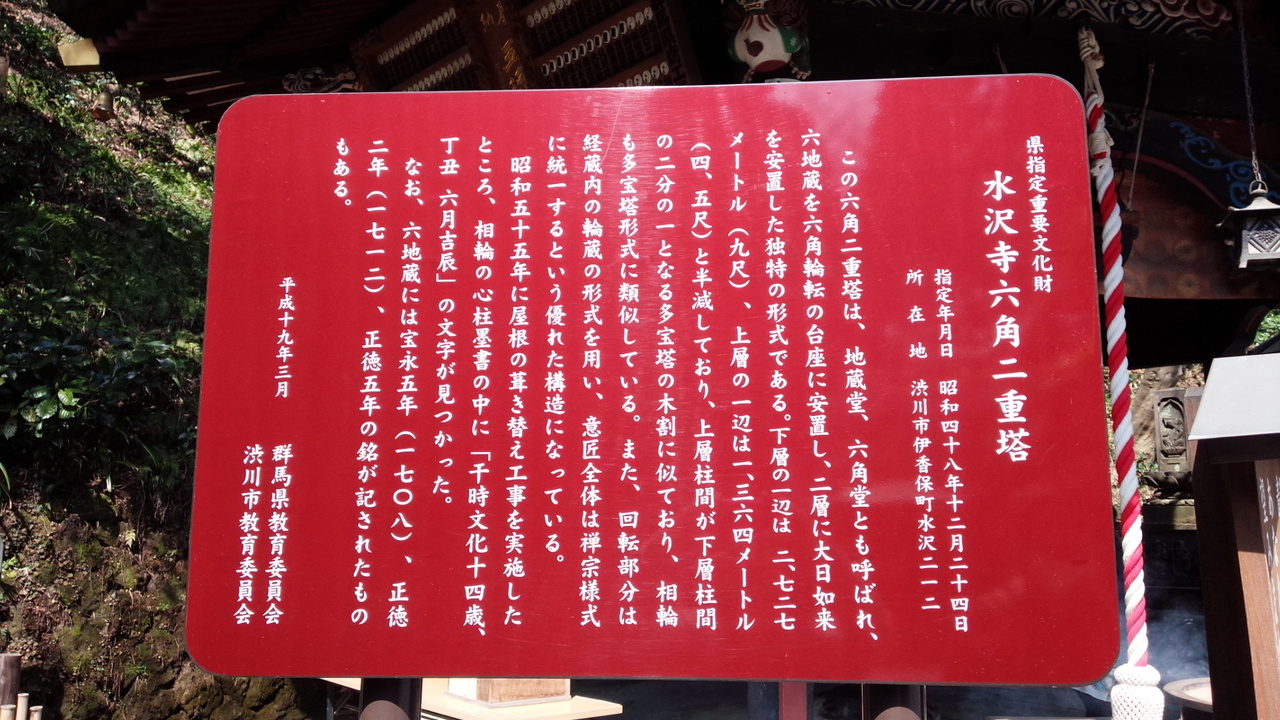 県指定重要文化財
水沢寺六角二重塔
指定年月日 昭和四十八年十二月二十四日
所在地 渋川市伊香保町水沢二一二
この六角二重塔は、地蔵堂、六角堂とも呼ばれ、
六地蔵を六角輪転の台座に安置し、二層に大日如来
を安置した独特の形式である。下層の一辺は二、七二七
メートル（九尺）、上層の一辺は一、三六四メートル
（四、五尺）と半減しており、上層柱間が下層柱間
の二分の一となる多宝塔の木割に似ており、相輪
も多宝塔形式に類似している。また、回転部分は
経蔵内の輪蔵の形式を用い、意匠全体は禅宗様式
に統一するという優れた構造になっている。
昭和五十五年に屋根の葺き替え工事を実施した
ところ、相輪の心柱墨書の中に「干時文化十四歳、
丁丑 六月吉辰」の文字が見つかった。
なお、六地蔵には宝永五年（一七〇八）、正徳
二年（一七一二）、正徳五年の銘が記されたもの
もある。
平成十九年三月
群馬県教育委員会
渋川市教育委員会